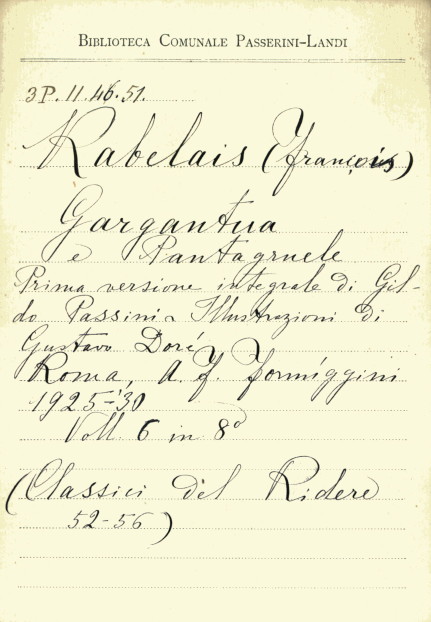 BIBLIOTECA COMUNALE PASSERINI-LANDI
3P. 11. 46. 51.
Rabelais (François)
Gargantua
e Pantagruele
Prima versione integrale di Gil-
do Passini - Illustrazioni di
Gustavo Doré
Roma, A. F. Formiggini
1925-'30
Voll. 6 in 8°
(Classici del Ridere
52-56)